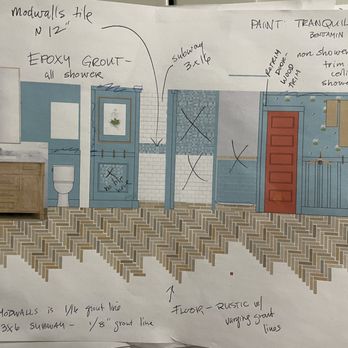 modwalls tile
N 12"
EPOXY GROUT -
all shower
subway
3x16
PAINT: TRANQUIL
BENJAMIN
non shower
trim
ceili
showe
DOOR -
WOOD
TRIM
MODWALLS is 1/16 grout line
3x6 SUBWAY - 1/8" grout line
FLOOR - RUSTIC w/
varying grout
lines